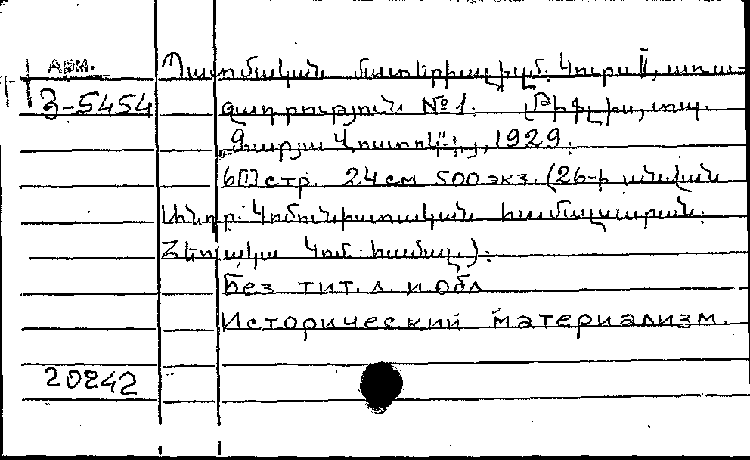 Арм.
Պատմական մատերիալիզմ. Կուրս II, առա-
3-5454
զադրություն № 1. Թիֆլիս, տպ.
"Զարյա Վոստոկա", 1929.
60 стр. 24 см 500 экз. (26-ի անվան
Անդր. Կոմունիստական համալսարան.
Հեռակա Կոմ. համալ.).
Без тит. л. и обл
Исторический материализм.
20242